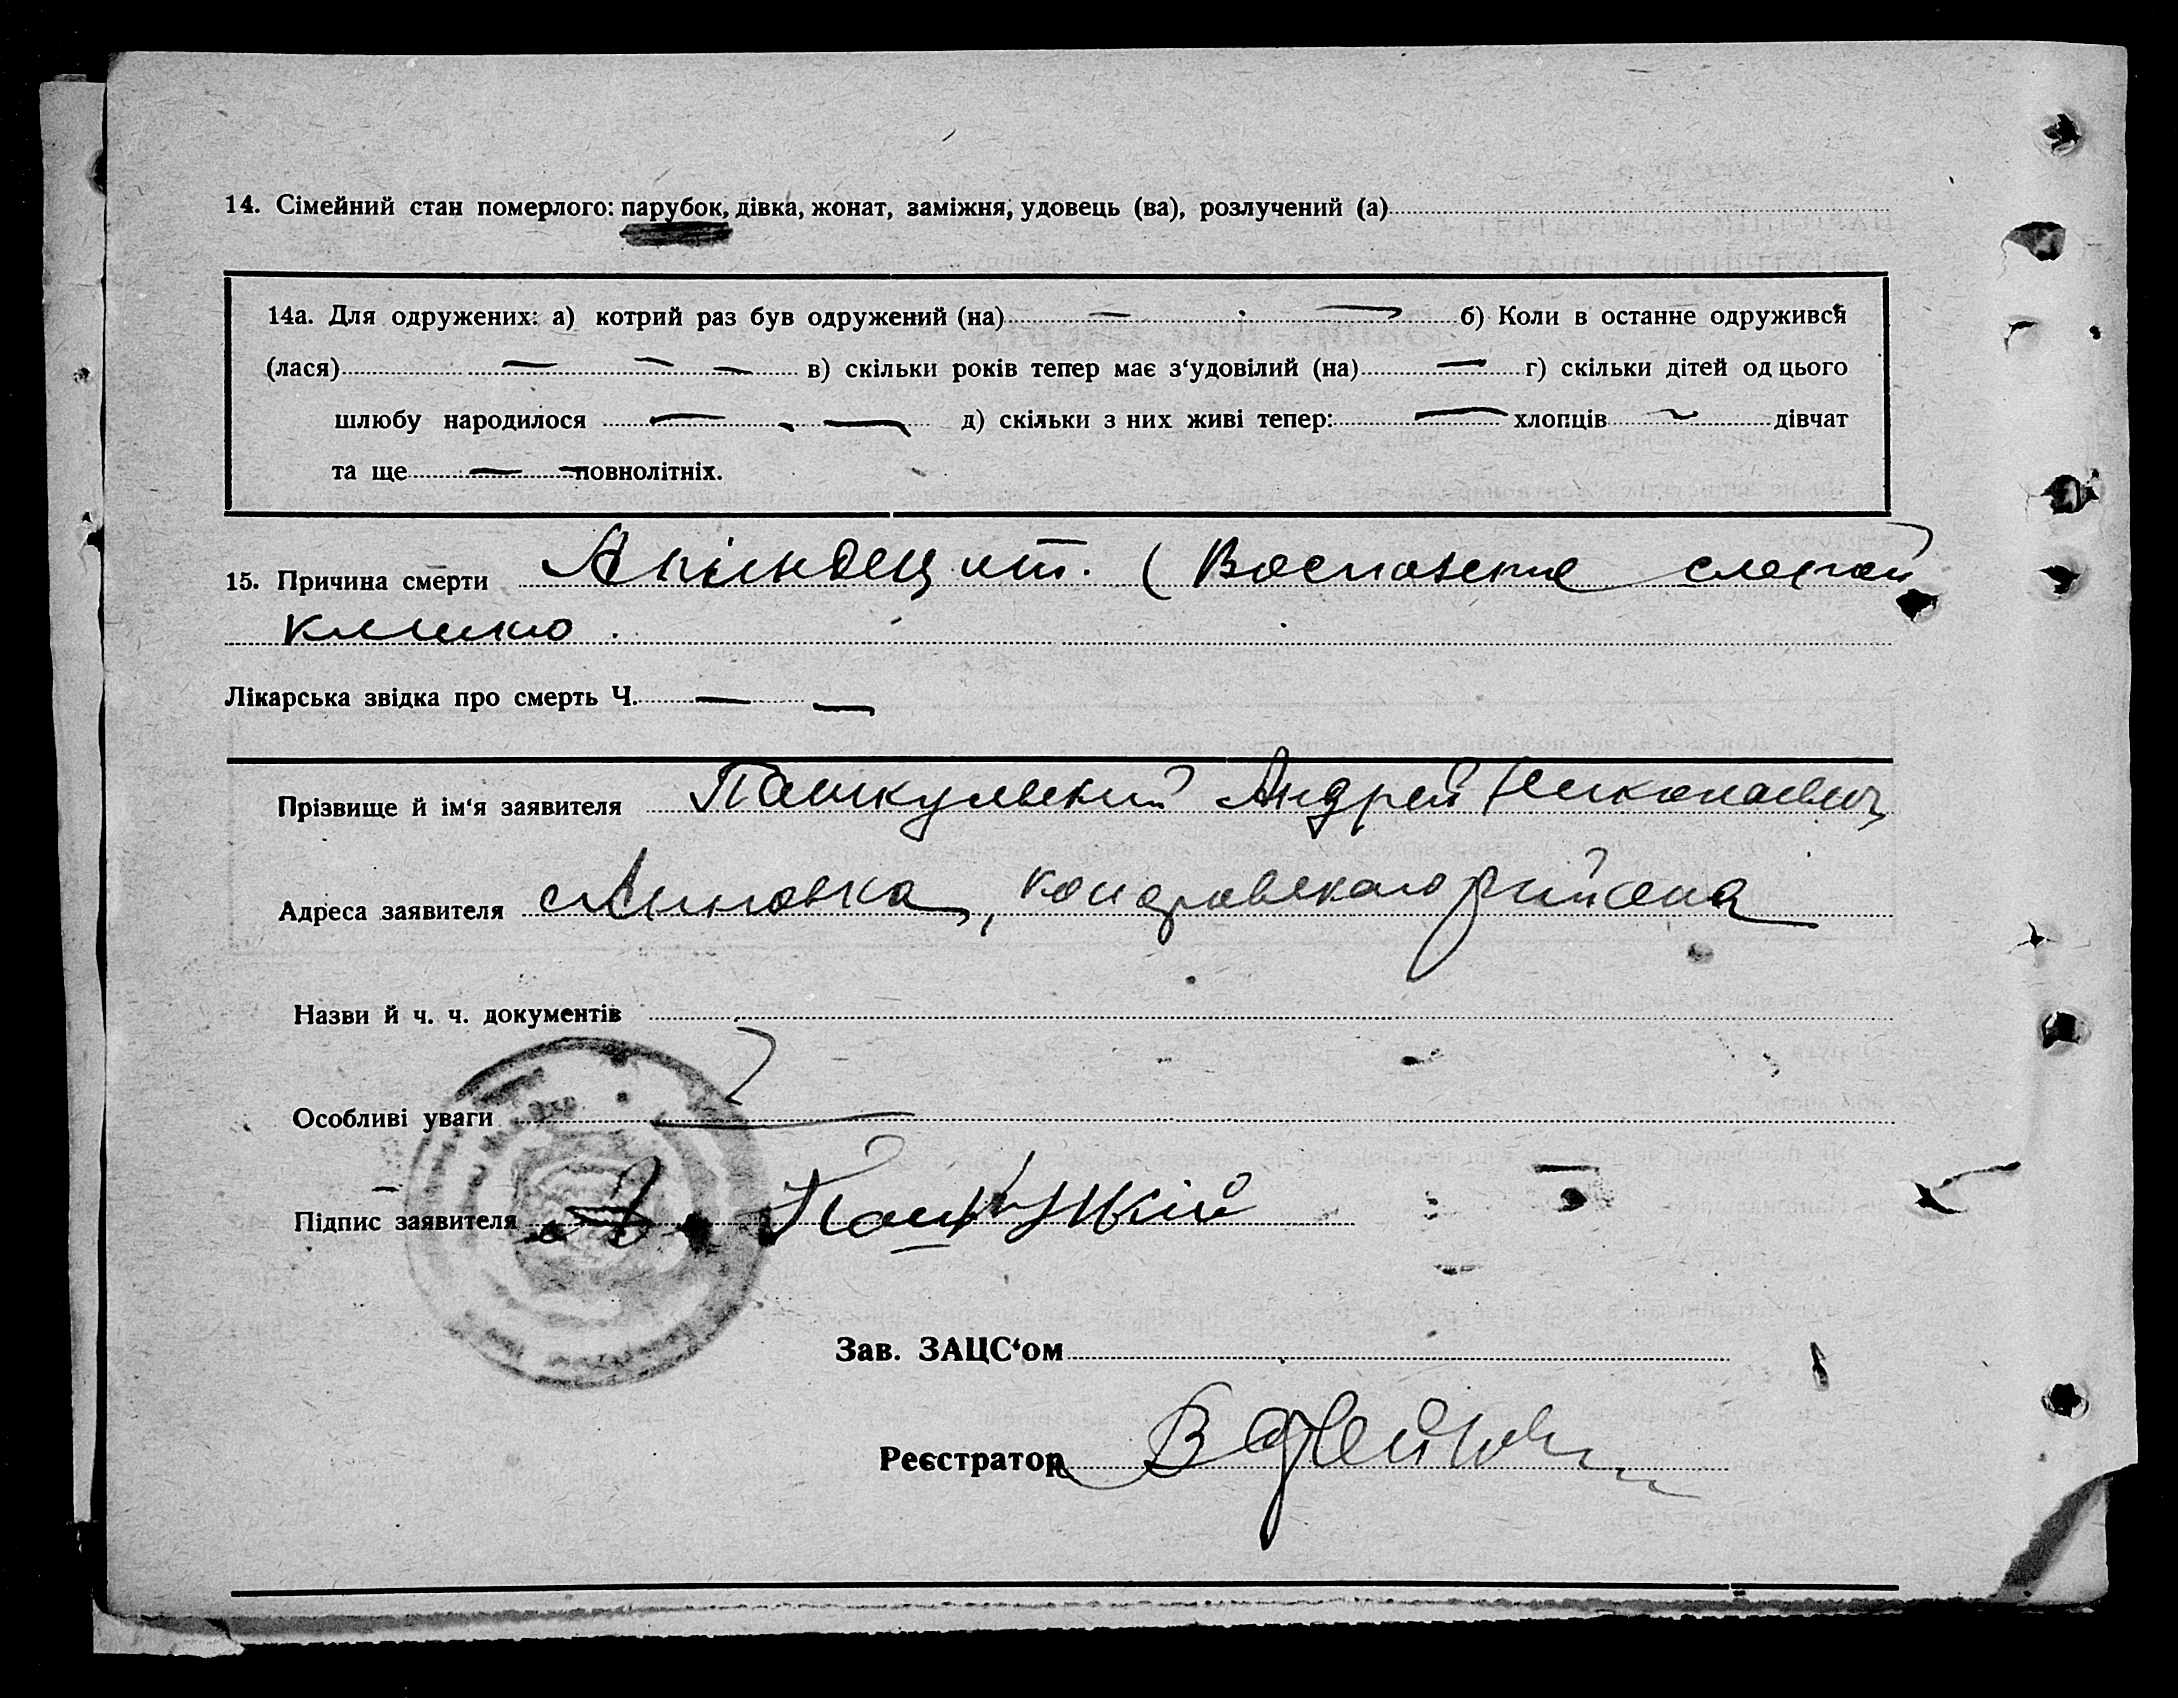 14. Сімейний стан померлого: парубок, дівка, жонат, заміжня, удовець (ва), розлучений (а)
14а. Для одружених: а) котрий раз був одружений (на) — — б) Коли в останне одружився
(лася) — — — в) скільки років тепер має з‘удовілий (на) — г) скільки дітей од цього
шлюбу народилося — — д) скільки з них живі тепер: — хлопців — дівчат
та ще — — повнолітніх.
15. Причина смерти Апіндецит. (Воспаление слепой
кишки.
Лікарська звідка про смерть Ч. — —
Прізвище й ім‘я заявителя Пашкульский Андрей Николаевич
Адреса заявителя района
Назви й ч. ч. документів
Особливі уваги
Підпис заявителя
Зав. ЗАЦС‘ом
Реєстратор